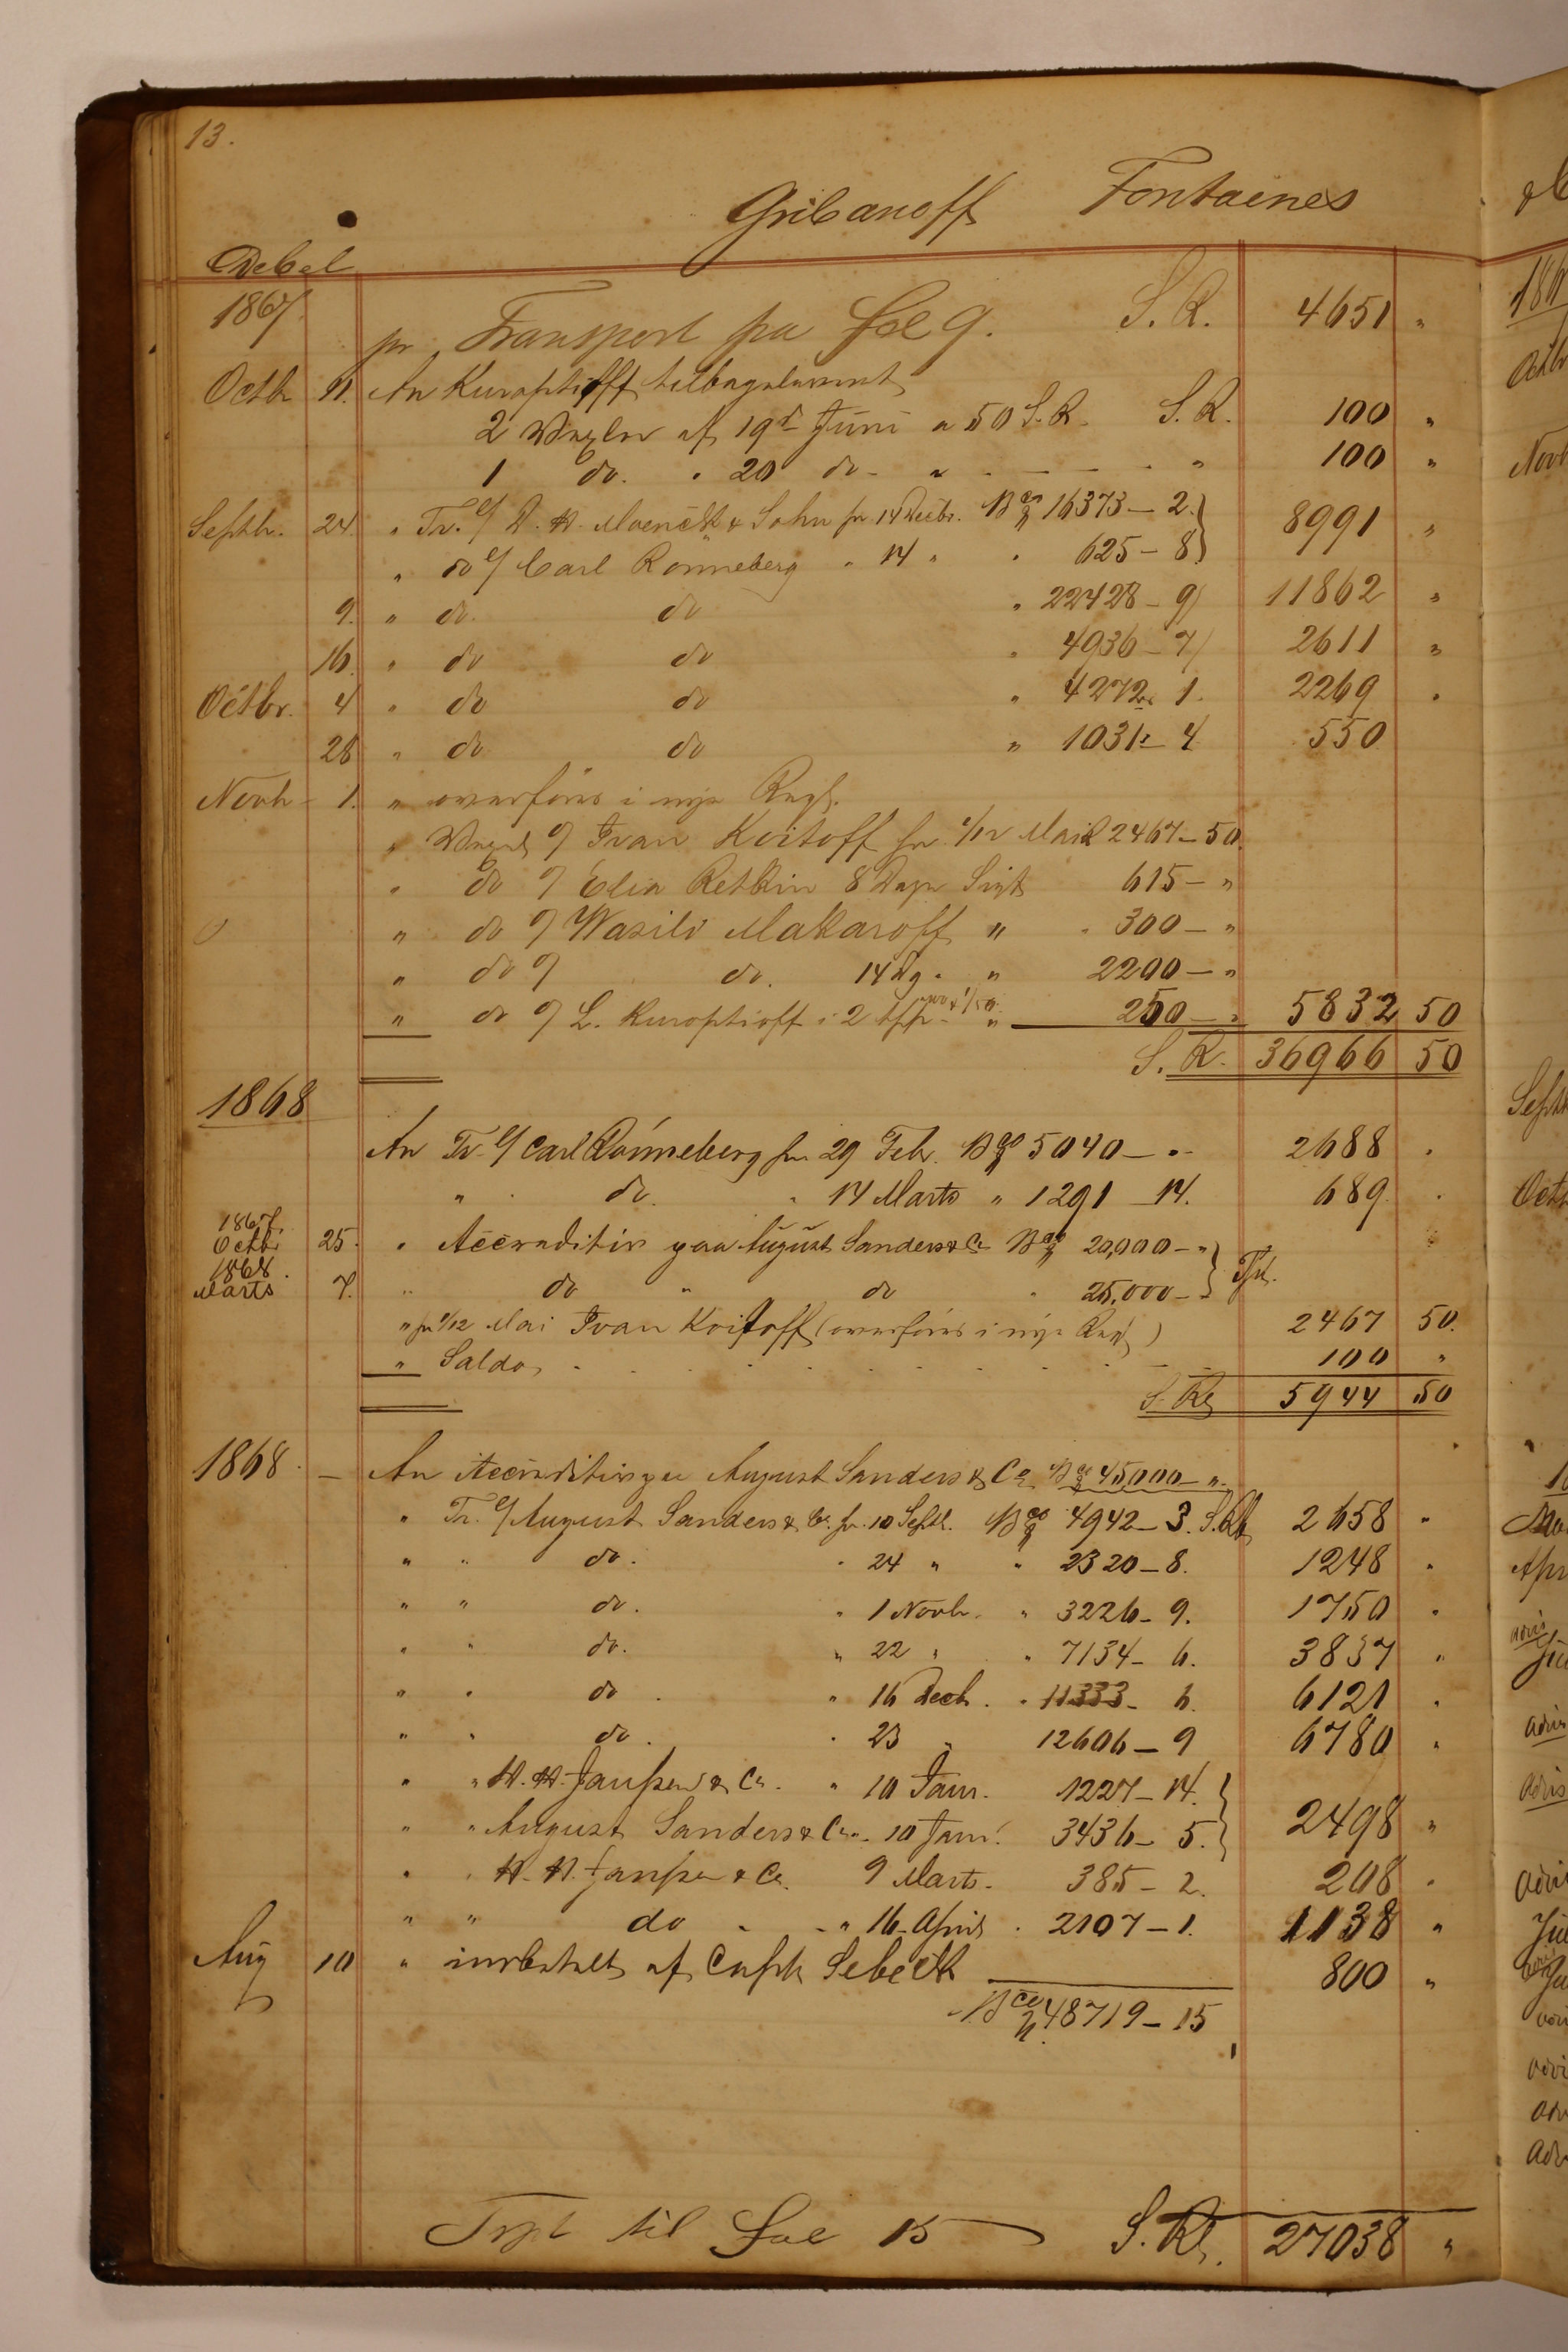 13.
Gribanoff Fontaines
Debet
1867 pr Transport fra Fol 9. S.R. 4651 "
Octbr 11. An Kuroptioff tilbageleveret
2 Vexler af 19de Juni a 50 S.R. S.R. 100 "
1 do. " 20 do - " - - - - " 100 "
Septbr. 24. " Tr. o/ D. H. Moenck & Sohn pr 14 Decbr. Bco 16373 - 2. 8991 "
" do o/ Carl Rönneberg " 14 " " 625 - 8.
9. " do. do " 22428 - 9 11862 "
16. " do do " 4936 - 7 2611 "
Octbr. 4 " do do " 4272 " 1. 2269 "
28 " do do " 1031 - 4 550
Novb - 1. " overføres i nye Regn.
" Vexel o/ Ivan Koitoff pr 1/12 Mai R 2467 - 50.
" do o/ Elia Retkin 8 Dage Sigt 615 - "
" do o/ Wasili Makaroff " " 300 - "
" do o/ do. 14 Dg. " 2200 - "
" do o/ L. Kuroptioff i 2 " 250 - " 5832 50
S.R. 36966 50
1868
An Tr. o/ Carl Rönneberg pr. 29 Febr. Bco 5040 - " - 2688 "
" " do. " 14 Marts " 1291 - 14. 689 "
1867. Octbr 25. " Accreditiv paa August Sanders & Co Bco 20,000 - "
1868. Marts 7. " do " do " 25,000 - "
" pr 1/12 Mai Ivan Koitoff (overføres i nye Regn.) 2467 50.
" Saldo . . . . . . . . 100 "
S. Rb 5944 50
1868. - An Accreditiv paa August Sanders & Co Bco 45,000 - "
" Tr. o/ August Sanders & Co. pr. 10 Septb. Bco 4942 - 3. S.Rb 2658 "
" " do. " 24 " " 2320 - 8. 1248 "
" " do. " 1 Novbr. " 3226 - 9. 1750 "
" " do. " 22 " " 7134 - 6. 3837 "
" " do. " 16 Decb. " 11333 - 6. 6121 "
" " do. " 23 " 12606 - 9 6780 "
" " H. H. Janssen & Co. " 10 Janr. 1227 - 14.
" " August Sanders & Co. - 10 Janr. 3436 - 5. 2498 "
" " H. H. Janssen & Co. 9 Marts - 385 - 2. 208 "
" " do - - " 16 April . 2107 - 1. 1138 "
Aug 10 " indbetalt af Capt. Sebeck 800 "
Bco 48719 - 15
Trpt til Fol 15 S. Rb. 27038 "